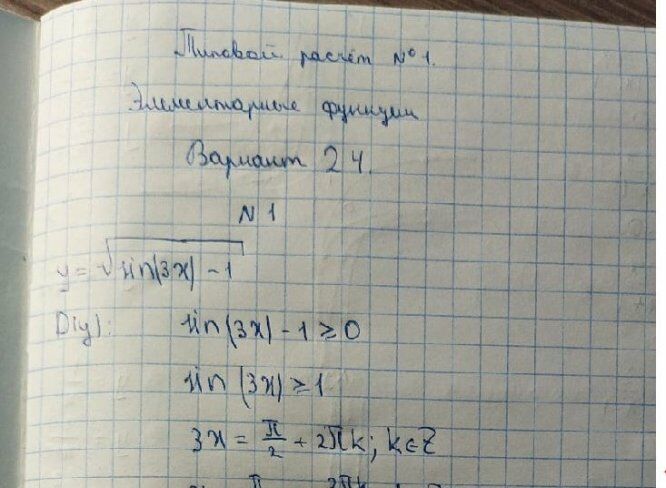 Типовой расчёт №1.
Элементарные функции
Вариант 24.
N 1
y = √(sin(3x) - 1)
D(y): sin(3x) - 1 ≥ 0
sin(3x) ≥ 1
3x = π/2 + 2πk; k∈Z